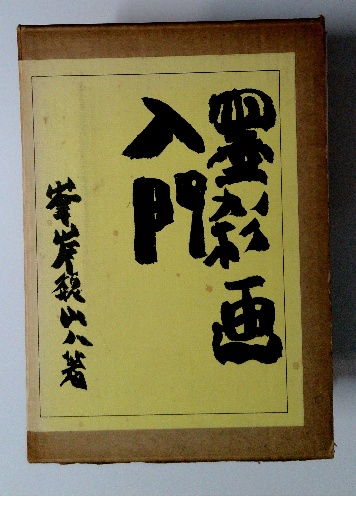 墨彩画
入門
峯岸魏山人著